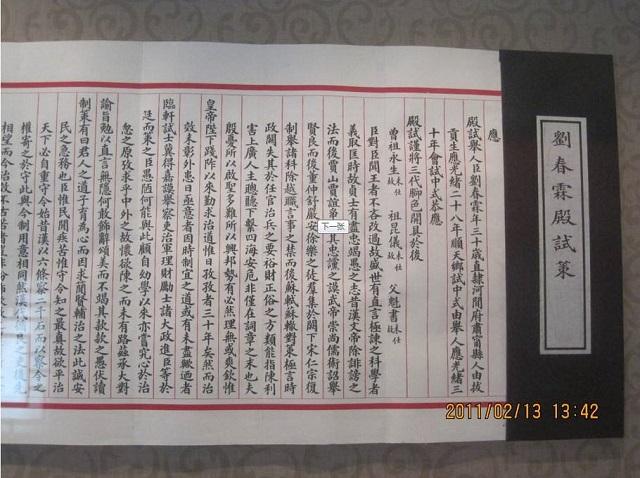 劉春霖殿試策
應
殿試舉人臣劉春霖年三十歲直隸河間府肅寧縣人由拔
貢生應光緒二十八年順天鄉試中式由舉人應光緒三
十年會試中式恭應
殿試謹將三代腳色開具於後
曾祖永生未仕故 祖昆儀未仕故 父魁書未仕
臣對臣聞王者不吝改過故盛世有直言極諫之科學者
義取匡時故貞士有盡忠竭愚之志昔漢文帝除誹謗之
法而後賈山賈誼其忠讜之謨武帝崇尚儒術詔舉
賢良而後董仲舒嚴安徐樂之徒羣集於闕下宋人宗復
制舉諸科除越職言事之禁而後蘇軾蘇轍對策極言時
政闕失其於任官治兵之要裕財正俗之方類能指陳利
害上廣人主聰聽下繫四海安危非僅在詞章之末也夫
殷憂所以啟聖多難所以興邦勢有必然理無或爽欽惟
皇帝陛下踐阼以來勤求治道惟日孜孜者三十年矣然而治
效未彰外患日亟意者因時制宜之道或有未盡歟迺者
臨軒試士冀得嘉謨舉察吏治軍理財勵士諸大政進臣等於
廷而策之臣愚陋何能與此顧自幼學以來亦嘗究心於治
忽之原攷求乎中外之故懷欲陳之而未有路茲承大對
諭旨勉以直言無隱何敢飾辭頌美而不竭其款款之愚伏讀
制策有曰君人之道子育為心而因求簡賢輔治之法此誠安
民之急務也臣惟民間疾苦惟守令知之最真故欲平治
天下必自重守令始昔漢以六條察二千石而以察令之
權寄之於守此與今制用意同
相望而今治效不古若者
下一张
2011/02/13 13:42